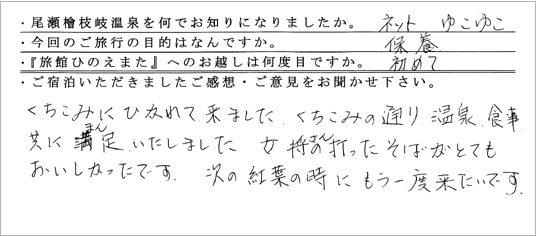 ・尾瀬檜枝岐温泉を何でお知りになりましたか。 ネット ゆこゆこ
・今回のご旅行の目的はなんですか。 保養
・『旅館ひのえまた』へのお越しは何度目ですか。 初めて
・ご宿泊いただきましたご感想・ご意見をお聞かせ下さい。
くちこみにひかれて来ました。くちこみの通り温泉、食事
共に満足いたしました 女将さんの打ったそばがとても
おいしかったです。 次の紅葉の時にもう一度来たいです。